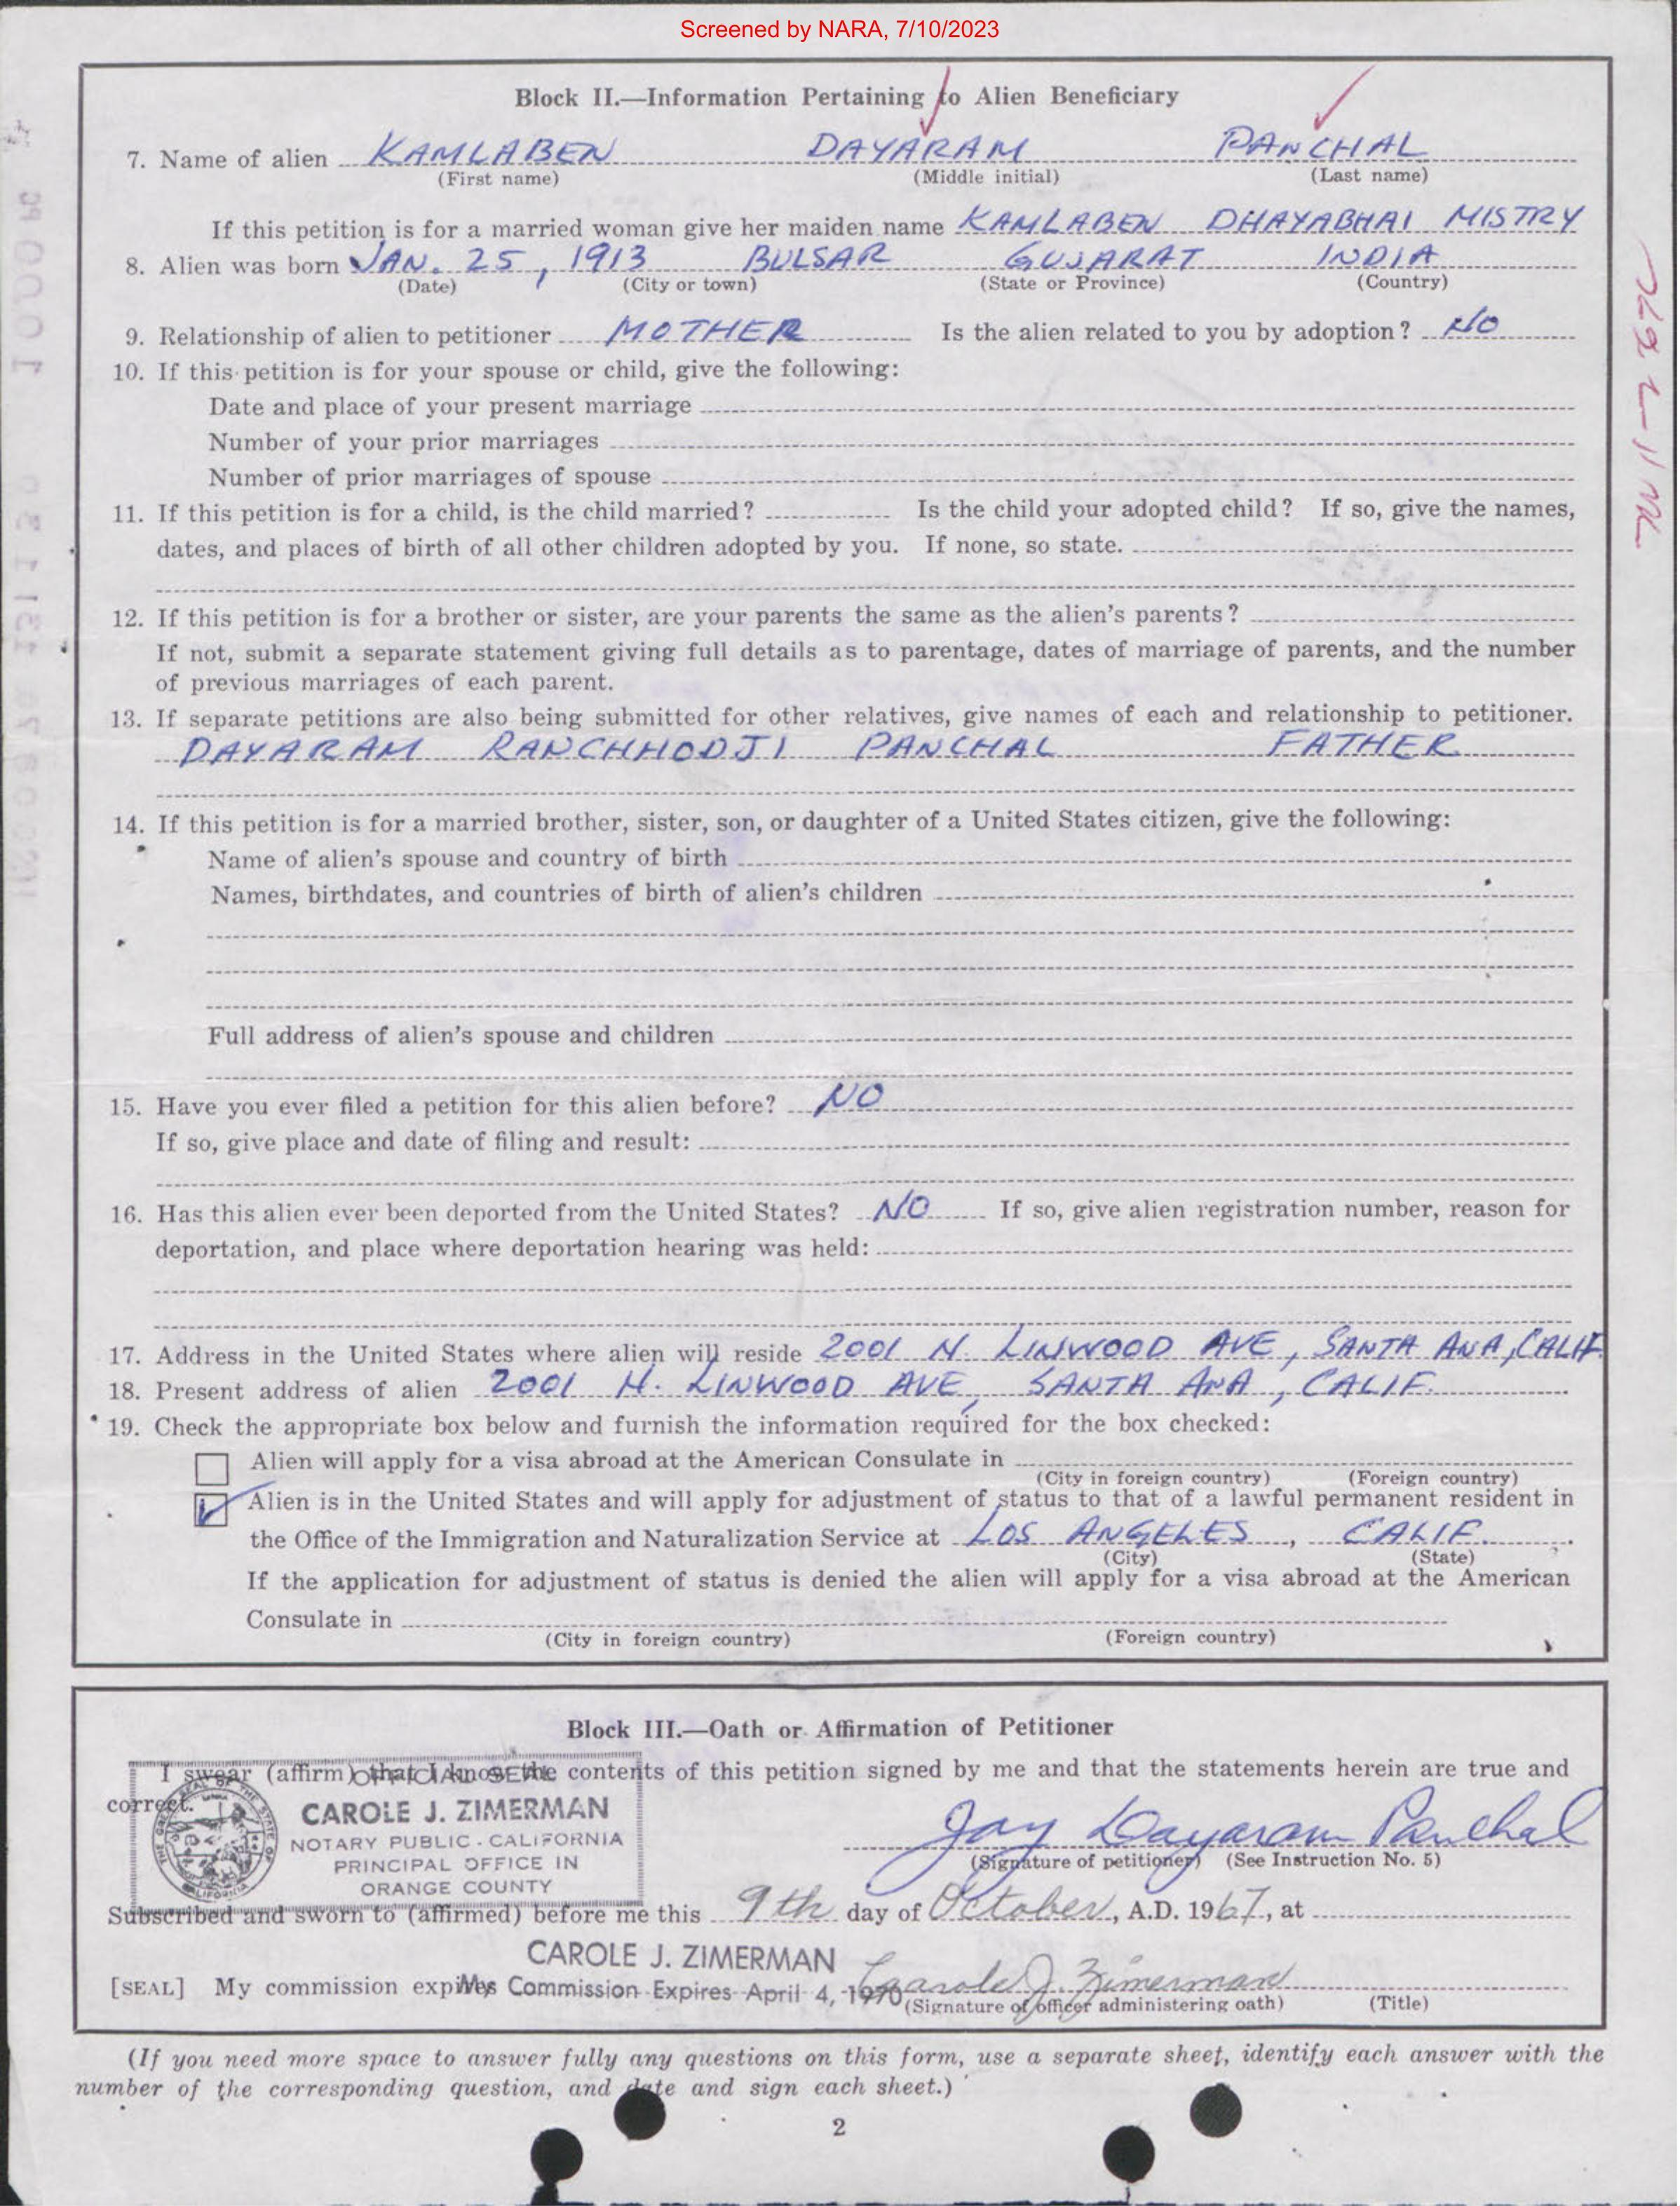 Screened by NARA, 7/10/2023
Block II.—Information Pertaining to Alien Beneficiary
7. Name of alien KAMLABEN DAYARAM PANCHAL
(First name) (Middle initial) (Last name)
If this petition is for a married woman give her maiden name KAMLABEN DHAYABHAI MISTRY
8. Alien was born JAN. 25, 1913 BULSAR GUJARAT INDIA
(Date) (City or town) (State or Province) (Country)
9. Relationship of alien to petitioner MOTHER Is the alien related to you by adoption? NO
10. If this petition is for your spouse or child, give the following:
Date and place of your present marriage
Number of your prior marriages
Number of prior marriages of spouse
11. If this petition is for a child, is the child married? Is the child your adopted child? If so, give the names,
dates, and places of birth of all other children adopted by you. If none, so state.
12. If this petition is for a brother or sister, are your parents the same as the alien's parents?
If not, submit a separate statement giving full details as to parentage, dates of marriage of parents, and the number
of previous marriages of each parent.
13. If separate petitions are also being submitted for other relatives, give names of each and relationship to petitioner.
DAYARAM RANCHHODJI PANCHAL FATHER
14. If this petition is for a married brother, sister, son, or daughter of a United States citizen, give the following:
Name of alien's spouse and country of birth
Names, birthdates, and countries of birth of alien's children
Full address of alien's spouse and children
15. Have you ever filed a petition for this alien before? NO
If so, give place and date of filing and result:
16. Has this alien ever been deported from the United States? NO If so, give alien registration number, reason for
deportation, and place where deportation hearing was held:
17. Address in the United States where alien will reside 2001 N. LINWOOD AVE, SANTA ANA, CALIF.
18. Present address of alien 2001 N. LINWOOD AVE, SANTA ANA, CALIF.
19. Check the appropriate box below and furnish the information required for the box checked:
Alien will apply for a visa abroad at the American Consulate in
(City in foreign country) (Foreign country)
Alien is in the United States and will apply for adjustment of status to that of a lawful permanent resident in
the Office of the Immigration and Naturalization Service at LOS ANGELES, CALIF.
(City) (State)
If the application for adjustment of status is denied the alien will apply for a visa abroad at the American
Consulate in
(City in foreign country) (Foreign country)
Block III.—Oath or Affirmation of Petitioner
I swear (affirm) that I know the contents of this petition signed by me and that the statements herein are true and
correct.
OFFICIAL SEAL
CAROLE J. ZIMERMAN
NOTARY PUBLIC - CALIFORNIA
PRINCIPAL OFFICE IN
ORANGE COUNTY
Jay Dayaram Panchal
(Signature of petitioner) (See Instruction No. 5)
Subscribed and sworn to (affirmed) before me this 9th day of October, A.D. 1967, at
CAROLE J. ZIMERMAN
[SEAL] My commission expires My Commission Expires April 4, 1970 Carole J. Zimerman
(Signature of officer administering oath) (Title)
(If you need more space to answer fully any questions on this form, use a separate sheet, identify each answer with the
number of the corresponding question, and date and sign each sheet.)
2